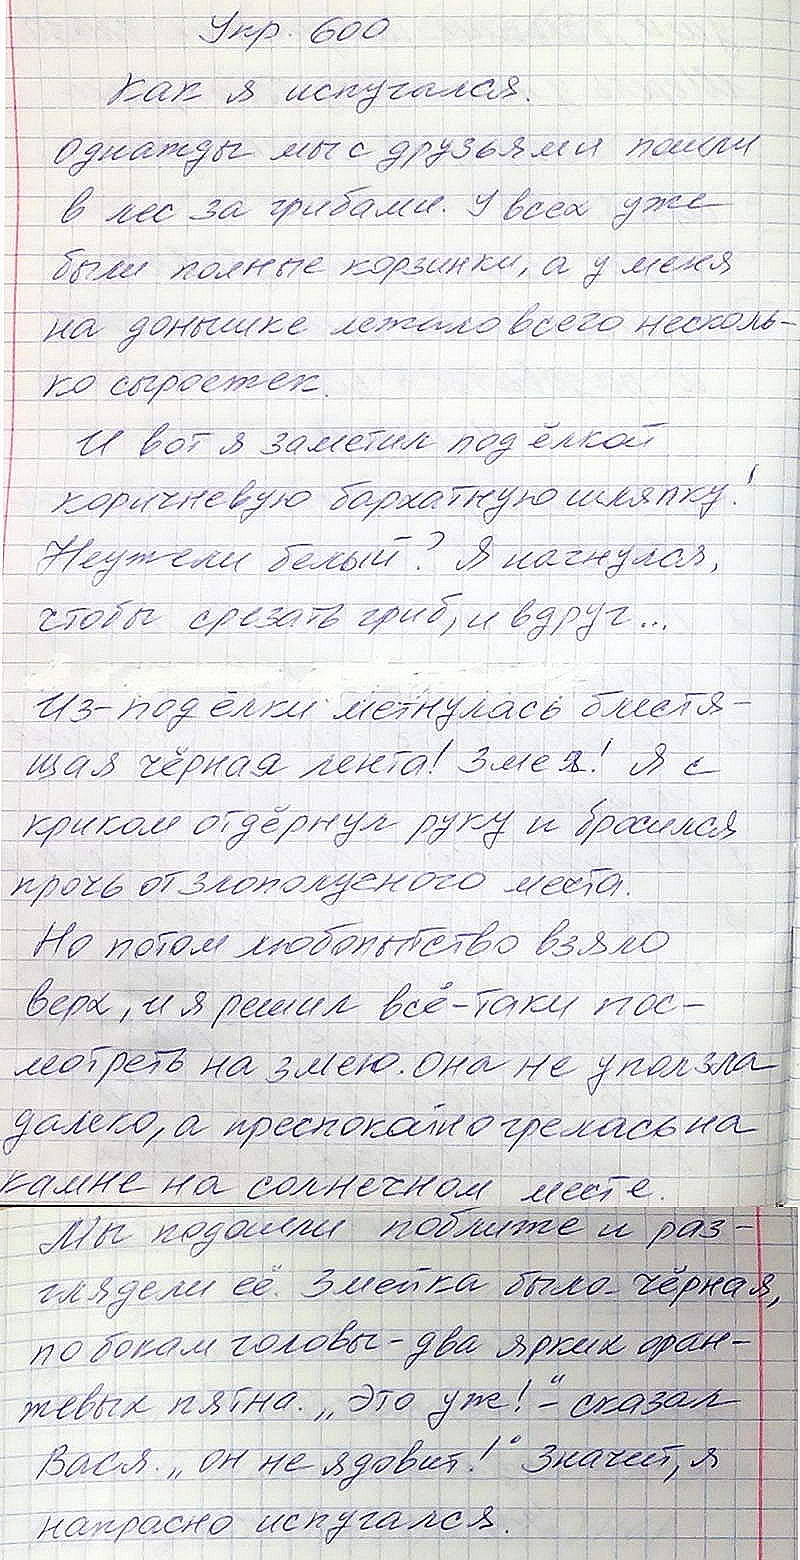 Упр. 600
Как я испугался.
Однажды мы с друзьями пошли
в лес за грибами. У всех уже
были полные корзинки, а у меня
на донышке лежало всего несколь-
ко сыроежек.
И вот я заметил под ёлкой
коричневую бархатную шляпку!
Неужели белый? Я нагнулся,
чтобы срезать гриб, и вдруг...
Из-под ёлки метнулась блестя-
щая чёрная лента! Змея! Я с
криком отдёрнул руку и бросился
прочь от злополучного места.
Но потом любопытство взяло
верх, и я решил всё-таки пос-
мотреть на змею. Она не уползла
далеко, а преспокойно грелась на
камне на солнечном месте.
Мы подошли поближе и раз-
глядели её. Змейка была чёрная,
по бокам головы - два ярких оран-
жевых пятна. „Это уж!" - сказал
Вася. „Он не ядовит!" Значит, я
напрасно испугался.